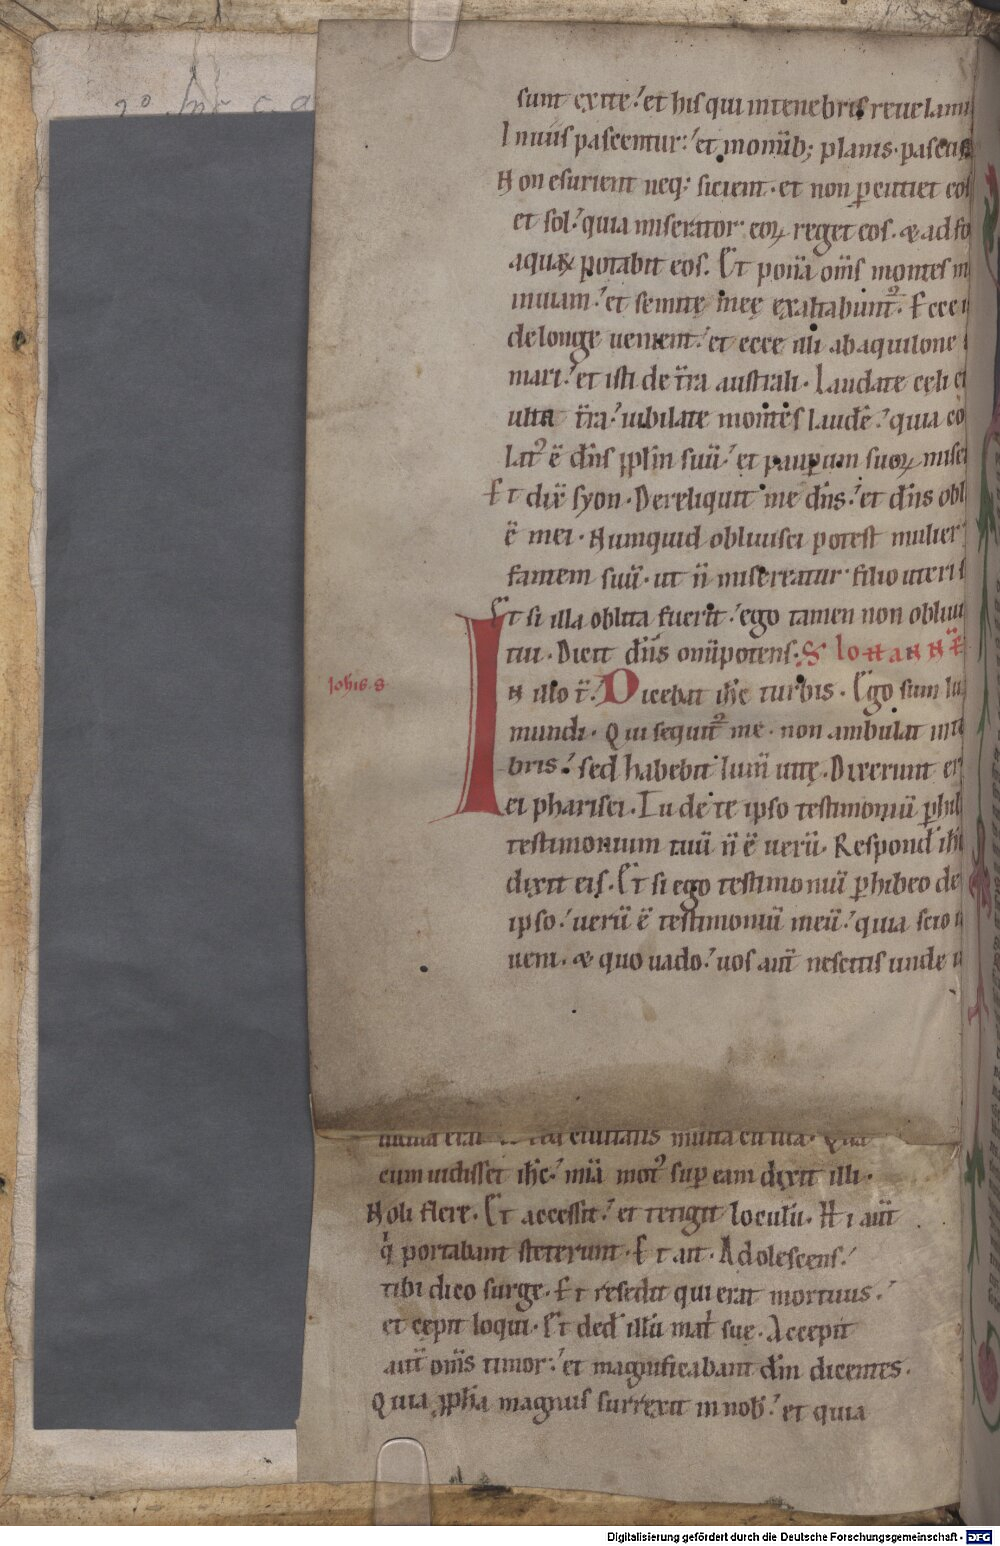 2º Inc. c. a.
sunt exite. et his qui intenebris reuelami
In uiis pascentur. et in om̄ib; planis. pascua
Non esurient neq; sicient. et non ꝑcutiet eos
et sol. quia miserator eoꝝ reget eos. & ad fo
aquaꝝ potabit eos. Et ponā om̄s montes m
inuiam. et semitę meę exaltabunt᷒. Ecce i
de longe uenient. et ecce illi abaquilone
mari. et isti de t̄ra australi. Laudate cęli et
ulta t̄ra. iubilate montes laudē. quia cō
lat᷒ ē dn̄s ppl̄m suū. et pauꝑum suoꝝ mise
Et dix̄ syon. Dereliquit me dn̄s. et dn̄s obl
ē mei. Numquid obliuisci potest mulier
fantem suū. ut n̄ misereatur filio uteri s
Et si illa oblita fuerit. ego tamen non obliui
tui. Dicit dn̄s omīpotens. S IohaNNE
Iohis. s.
In illo t̄. Dicebat ih̄c turbis. Ego sum lu
mundi. Qui sequit᷒ me. non ambulat inte
bris. sed habebit lum̄ uitę. Dixerunt er
ei pharisei. Tu de te ipso testimoniū ꝑhib
testimonium tuū n̄ ē uerū. Respond̄ ih̄c
dixit eis. Et si ego testimoniū ꝑhibeo de
ipso. uerū ē testimoniū meū. quia scio u
ueni. & quo uado. uos aut̄ nescitis unde u
eum uidisset ih̄c. mīa mot᷒ suꝑ eam dixit illi.
Noli flere. Et accessit. et tetigit loculū. Hi aut̄
q̇ portabant steterunt. Et ait. Adolescens.
tibi dico surge. Et resedit qui erat mortuus.
et cepit loqui. Et ded̄ illū mat̄ sue. Accepit
aut̄ om̄s timor. et magnificabant dm̄ dicentes.
Quia ppha magnus surrexit in nob̄. et quia
Digitalisierung gefördert durch die Deutsche Forschungsgemeinschaft - DFG